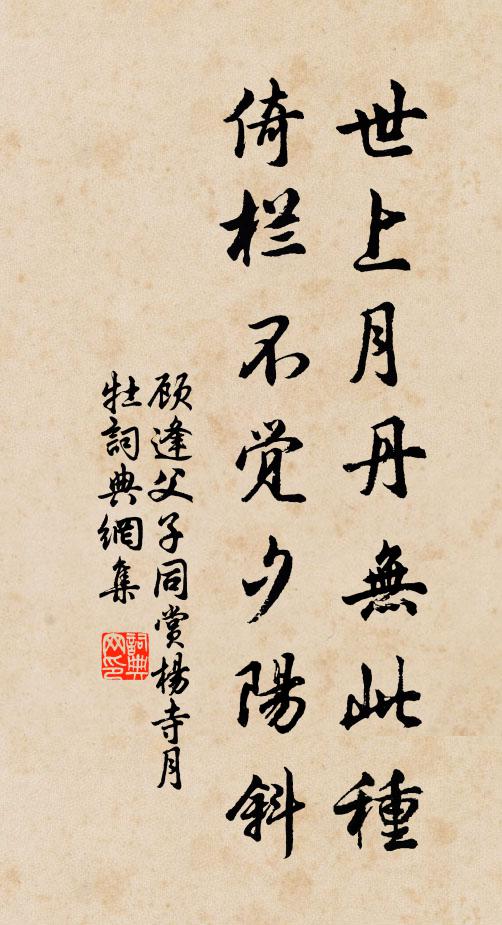 世上月丹無此種
倚栏不觉夕陽斜
顾逢父子同赏楊寺月
牡詞典網集
詞典网印